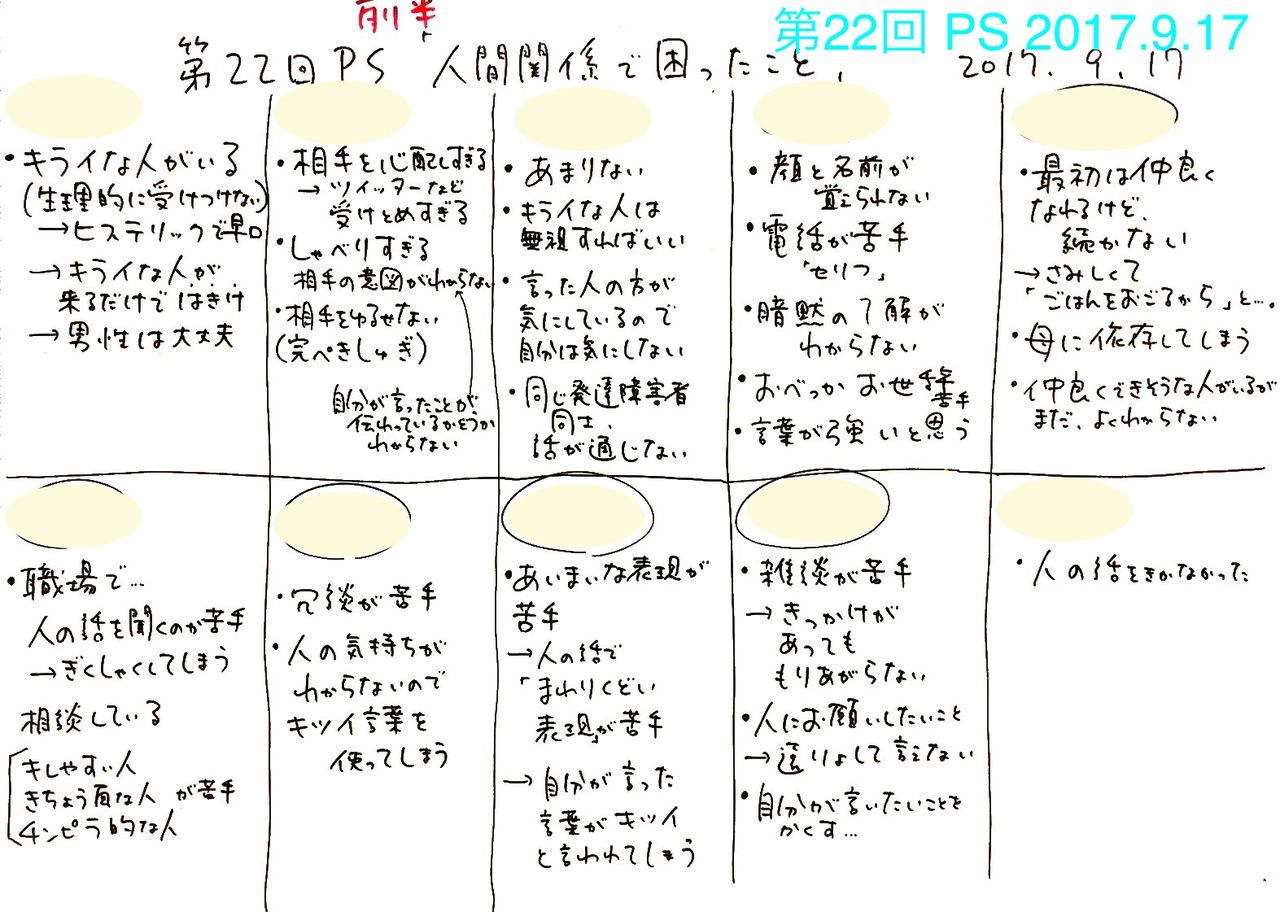 前半
第22回 PS 2017.9.17
第22回 PS 人間関係で困ったこと、 2017.9.17
・キライな人がいる
(生理的に受けつけない)
→ヒステリックで早口
→キライな人が、
来るだけではきけ
→男性は大丈夫
・相手を心配しすぎる
→ツイッターなど
受けとめすぎる
・しゃべりすぎる
相手の意図がわからない
・相手をゆるせない
(完ぺきしゅぎ)
自分が言ったことが、
伝わっているかどうか
わからない
・あまりない
・キライな人は
無視すればいい
・言った人の方が
気にしているので
自分は気にしない
・同じ発達障害者
同士、
話が通じない
・顔と名前が
覚えられない
・電話が苦手
「セリフ」
・暗黙の了解が
わからない
・おべっか お世辞
苦手
・言葉が強いと思う
・最初は仲良く
なれるけど、
続かない
→さみしくて
「ごはんをおごるから」と…。
・母に依存してしまう
・仲良くできそうな人がいるが
まだ、よくわからない
・職場で…
人の話を聞くのが苦手
→ぎくしゃくしてしまう
相談している
キしやすい人
きちょう面な人 が苦手
チンピラ的な人
・冗談が苦手
・人の気持ちが
わからないので
キツイ言葉を
使ってしまう
・あいまいな表現が
苦手
→人の話で
「まわりくどい
表現」が苦手
→自分が言った
言葉がキツイ
と言われてしまう
・雑談が苦手
→きっかけが
あっても
もりあがらない
・人にお願いしたいこと
→遠りょして言えない
・自分が言いたいことを
かくす…
・人の話をきかなかった